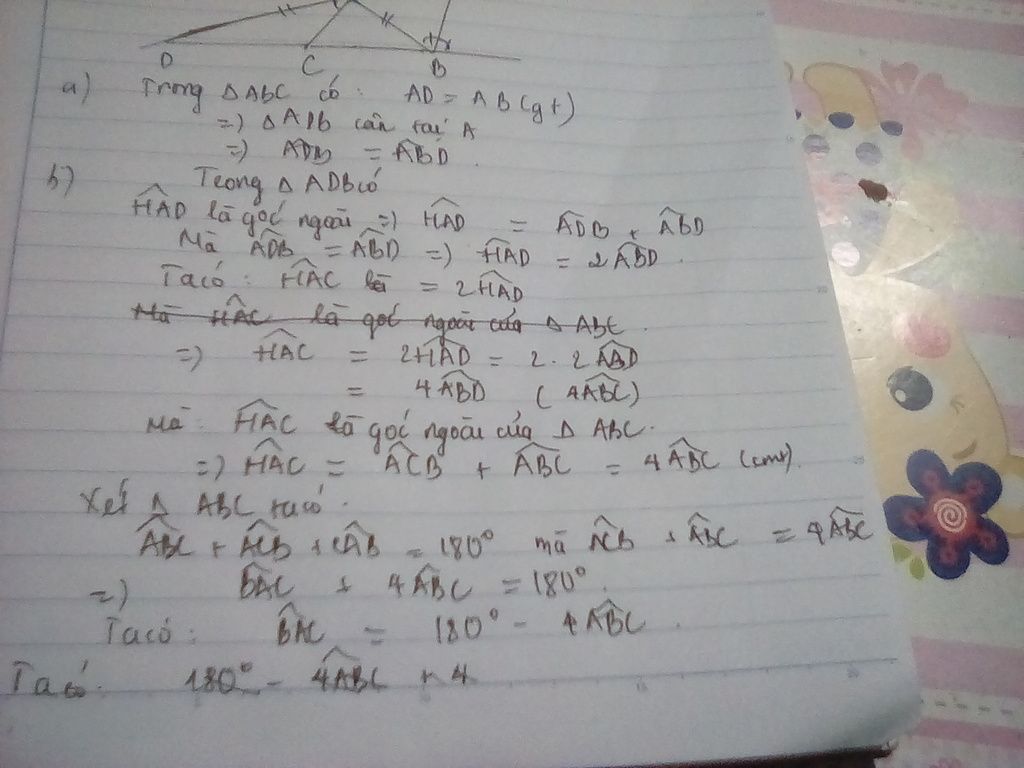 D C B
a) Trong △ABC có: AD = AB (gt)
=) △ADB cân tại A
=) ADB = ABD.
b) Trong △ ADB có
HAD là góc ngoài =) HAD = ADB + ABD
Mà ADB = ABD =) HAD = 2ABD.
Ta có: HAC là = 2HAD
Mà HAC là góc ngoài của △ ABC.
=) HAC = 2HAD = 2. 2ABD
= 4ABD (4ABC)
Mà: HAC là góc ngoài của △ ABC.
=) HAC = ACB + ABC = 4ABC (cmt).
Xét △ ABC ta có:
ABC + ACB + CAB = 180° mà ACB + ABC = 4ABC
=) BAC + 4ABC = 180°.
Ta có: BAC = 180° - 4ABC.
Ta có: 180° - 4ABC + 4